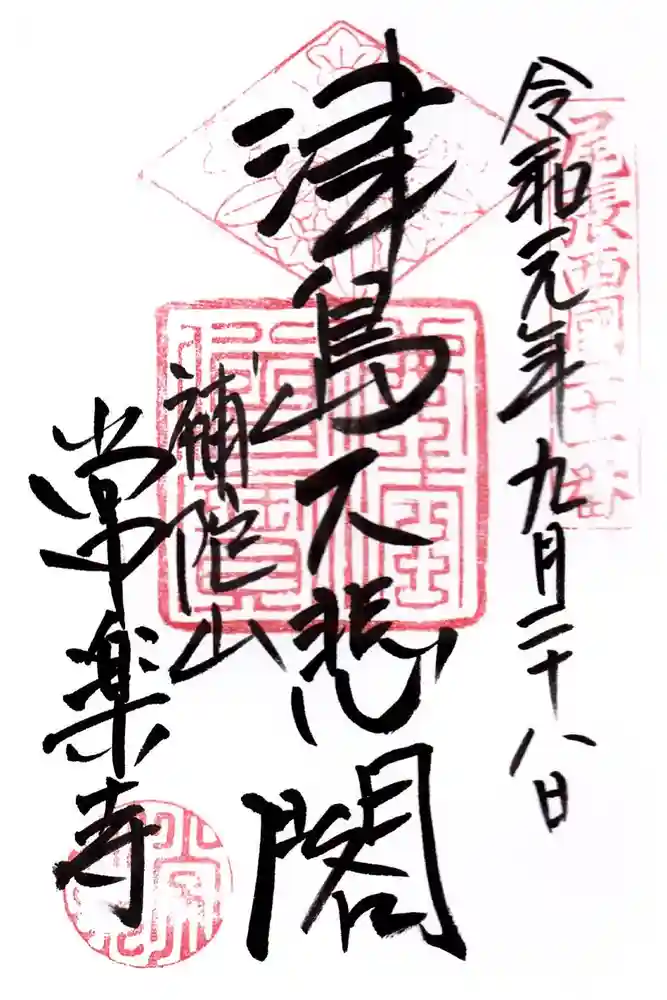 尾張西國二十一番
令和元年九月二十八日
津島大悲閣
補陀山
常楽寺